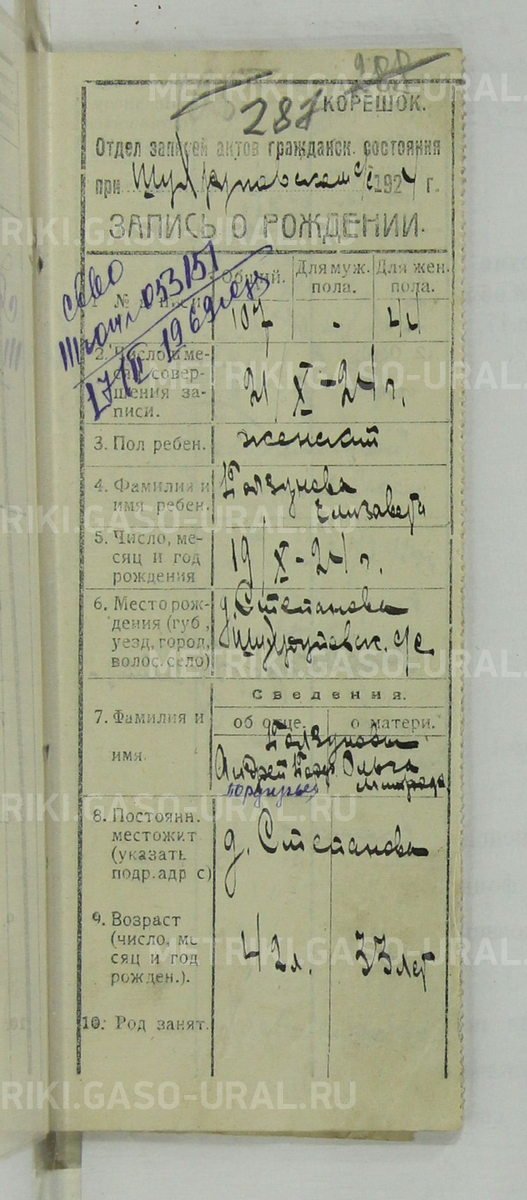 288
287
КОРЕШОК.
Отдел записей актов гражданск. состояния
при с/с 1924 г.
ЗАПИСЬ О РОЖДЕНИИ.
053151
17/II 1969
Общий. Для муж. пола. Для жен. пола.
1. №
107 - 44
2. Число, месяц совершения записи.
21/X-24 г.
3. Пол ребен. женский
4. Фамилия и имя ребен.
Елизавета
5. Число, месяц и год рождения
19/X-24 г.
6. Место рождения (губ., уезд, город, волос. село)
д. Степанова
с/с
Сведения.
7. Фамилия и имя.
об отце. о матери.
Андрей Ольга
8. Постоянн. местожит (указать подр. адрес)
д. Степанова
9. Возраст (число, месяц и год рожден.).
42 л. 33 лет
10. Род занят.
METRIKI.GASO-URAL.RU